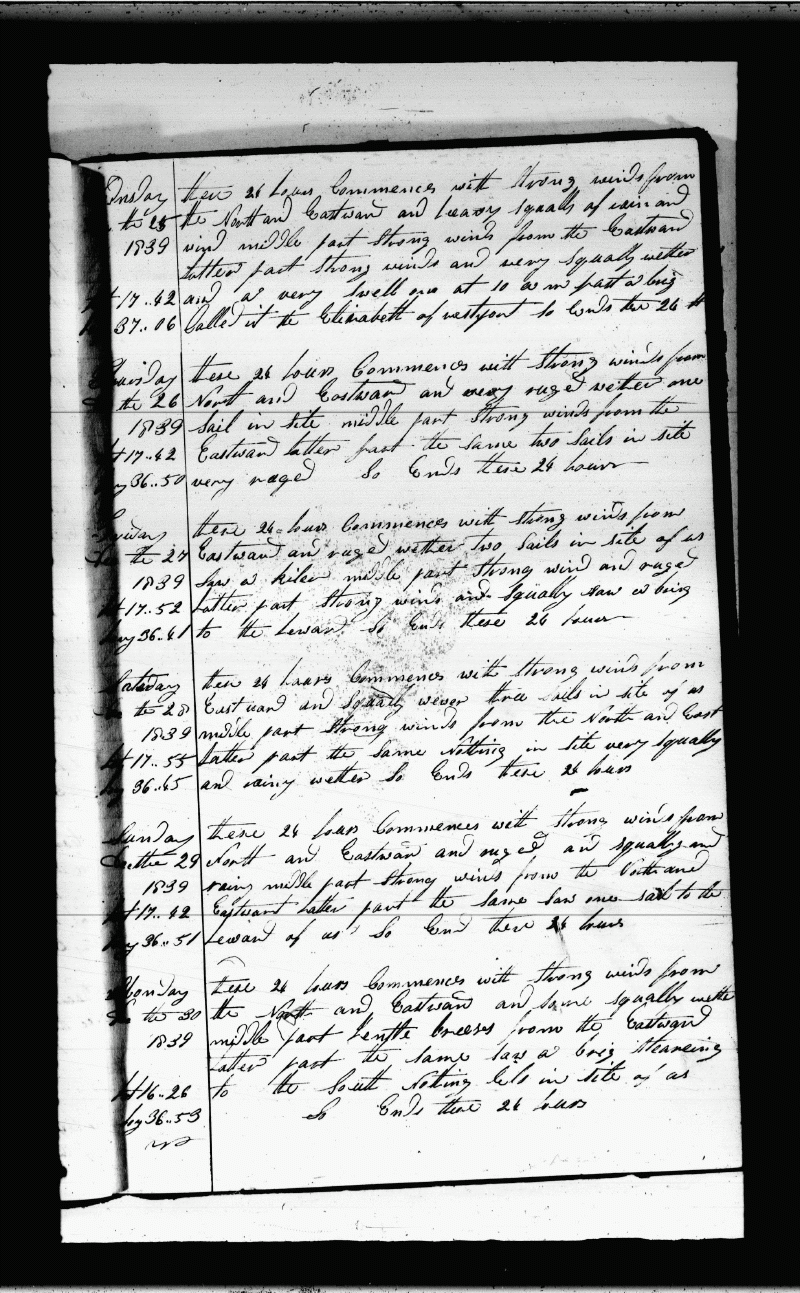 these 24 hours Commences with Strong winds from
the 25 the North and Eastward and heavy squalls of rain and
1839 wind middle part Strong winds from the Eastward
Latter part Strong winds and very Squally wether
17..42 and a very Swell on at 10 a m past a brig
37..06 Called it the Elizabeth of westport So Ends these 24 H
these 24 hours Commences with Strong winds from
the 26 North and Eastward and very ruged wether one
1839 Sail in Site middle part Strong winds from the
17..42 Eastward Latter part the Same two Sails in Site
36..50 very ruged So Ends these 24 hours
these 24 hours Commences with Strong winds from
the 27 Eastward and ruged wether two Sails in Site of us
1839 Saw a kiler middle part Strong wind and ruged
17..52 Latter part Strong winds and Squally Saw a brig
36..41 to the Leward So Ends these 24 hours
these 24 hours Commences with Strong winds from
the 28 Eastward and Squally three Sails in Site of us
1839 middle part Strong winds from the North and East
17..55 Latter part the Same Nothing in Site very Squally
36..45 and rainy wether So Ends these 24 hours
Sunday these 24 hours Commences with Strong winds from
the 29 North and Eastward and ruged and Squally and
1839 rainy middle part Strong winds from the North and
17..42 Eastward Latter part the Same Saw one Sail to the
36..51 Leward of us So End these 24 hours
Monday these 24 hours Commences with Strong winds from
the 30 the North and Eastward and Some Squally wether
1839 middle part Gentle breeses from the Eastward
Latter part the Same Saw a brig Steareing
16..26 to the South Nothing in Site of us
36..53 So Ends these 24 hours